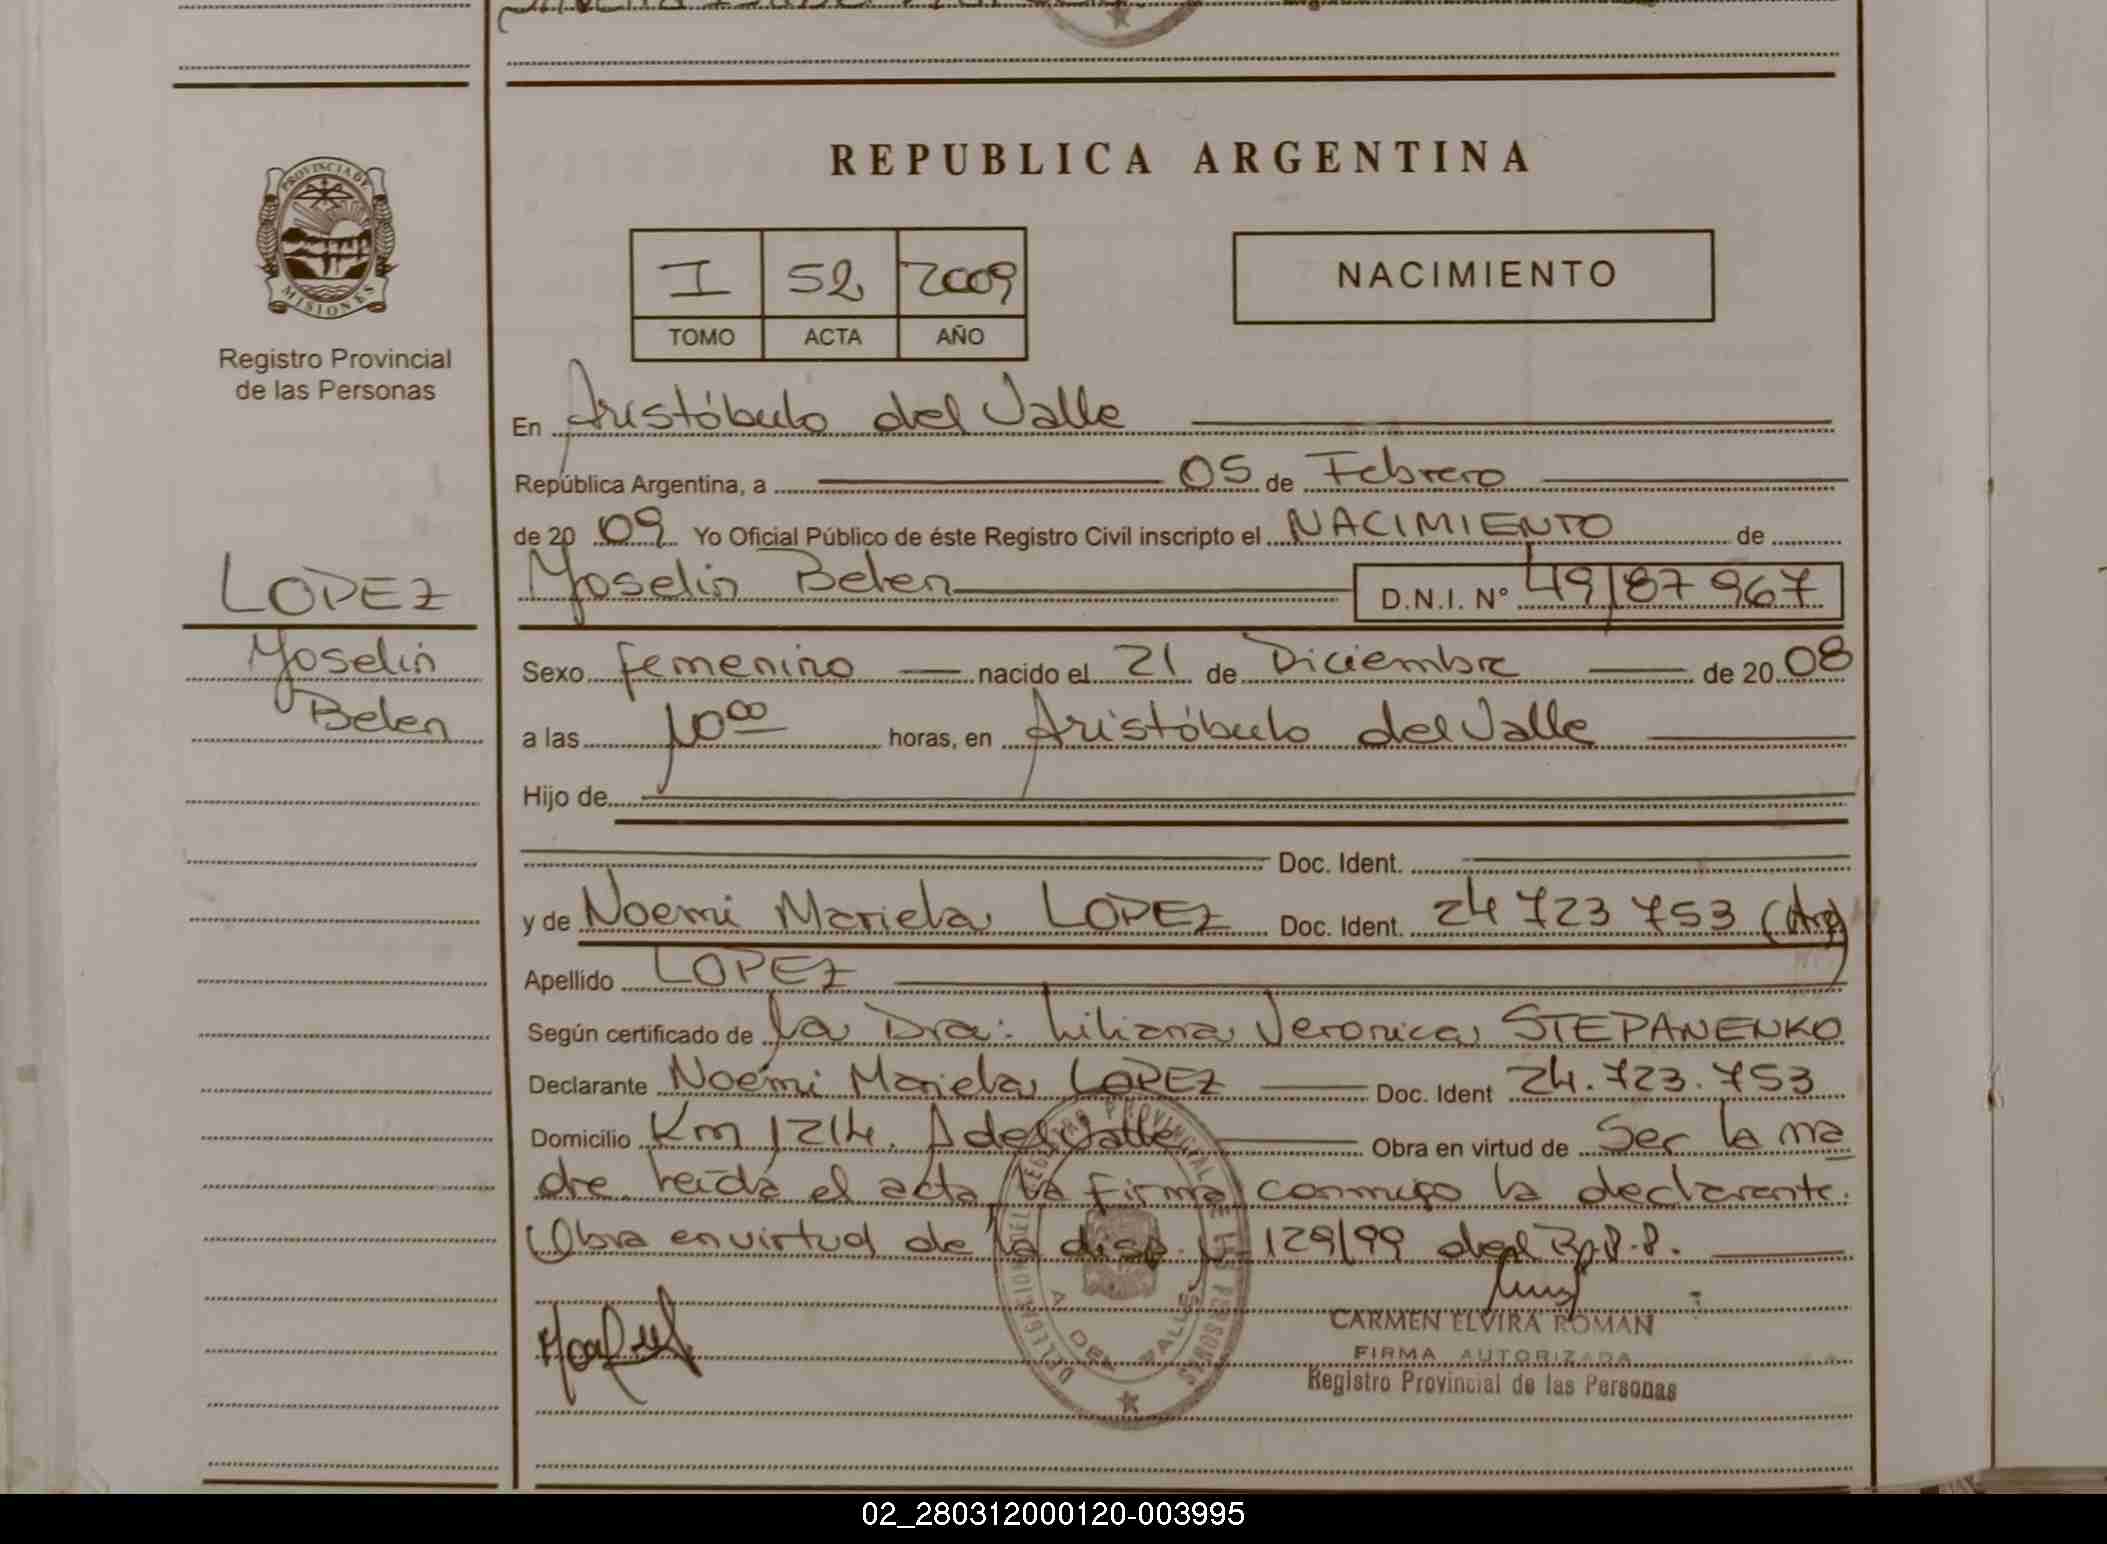 REPUBLICA ARGENTINA
PROVINCIA DE
MISIONES
Registro Provincial
de las Personas
I 52 2009
TOMO ACTA AÑO
NACIMIENTO
En Aristóbulo del Valle
República Argentina, a 05 de Febrero
de 20 09 Yo Oficial Público de éste Registro Civil inscripto el NACIMIENTO de
Yoselin Belen D.N.I. N° 49187967
LOPEZ
Yoselin
Belen
Sexo femenino nacido el 21 de Diciembre de 20 08
a las 10 00 horas, en Aristóbulo del Valle
Hijo de
Doc. Ident.
y de Noemi Mariela LOPEZ Doc. Ident. 24 723 753 (Arg)
Apellido LOPEZ
Según certificado de la Dra: Liliana Veronica STEPANENKO
Declarante Noemi Mariela LOPEZ Doc. Ident 24.723.753
Domicilio Km 1214. A del Valle Obra en virtud de Ser la ma
dre leida el acta la firma conmigo la declarante.
Obra en virtud de la disp. N° 129/99 del R.P.P.
DELEGACION DEL REGISTRO PROVINCIAL DE LAS PERSONAS
A DEL VALLE
CARMEN ELVIRA ROMAN
FIRMA AUTORIZADA
Registro Provincial de las Personas
02_280312000120-003995